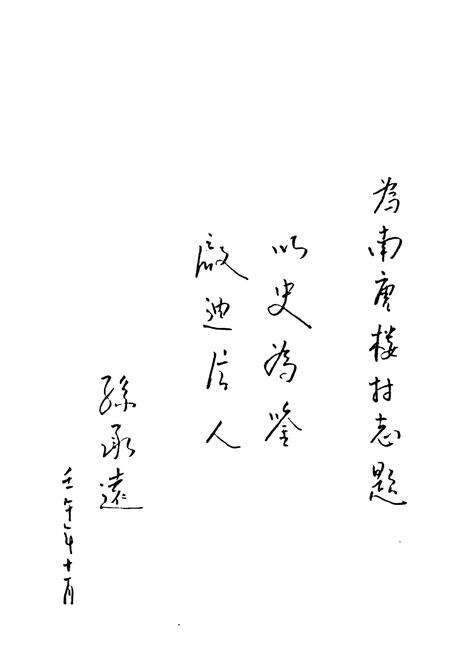 為南唐楼村志題
以史為鉴
啟迪后人
孫承遠
壬午年十月